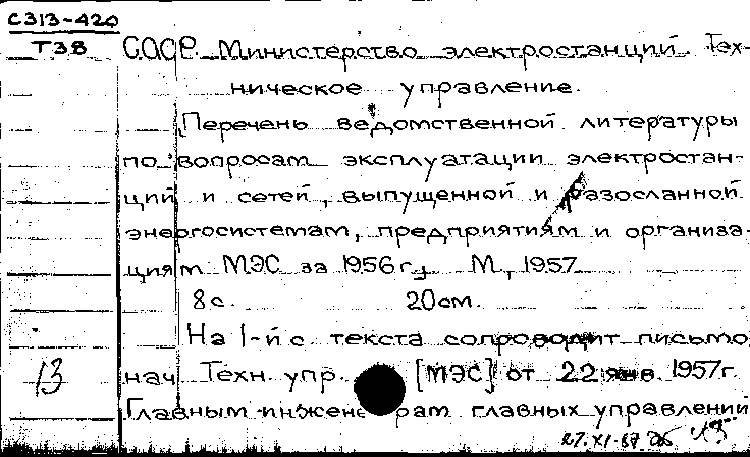 С313-420
Т38
СССР. Министерство электростанций. Тех-
ническое управление.
Перечень ведомственной литературы
по вопросам эксплуатации электростан-
ций и сетей, выпущенной и разосланной
энергосистемам, предприятиям и организа-
циям МЭС за 1956 г. М., 1957
8 с. 20 см.
На 1-й с текста сопроводит письмо
13
нач Техн. упр. [МЭС] от 22 янв. 1957 г.
Главным инженерам главных управлений
27.XI-57